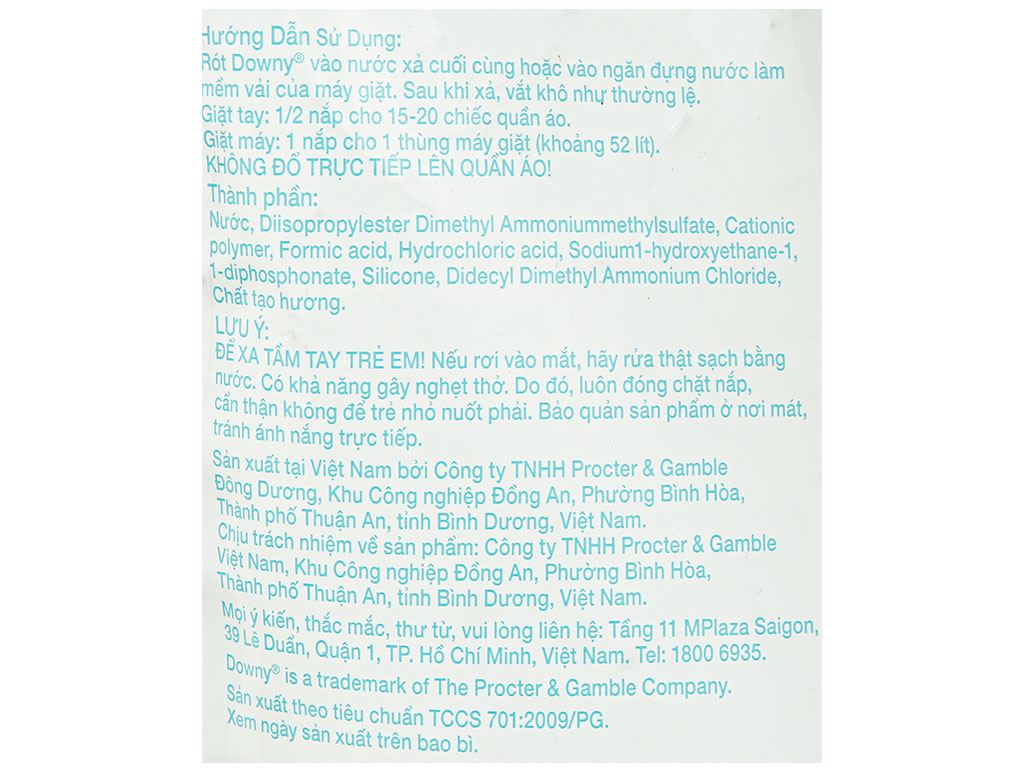 Hướng Dẫn Sử Dụng:
Rót Downy® vào nước xả cuối cùng hoặc vào ngăn đựng nước làm
mềm vải của máy giặt. Sau khi xả, vắt khô như thường lệ.
Giặt tay: 1/2 nắp cho 15-20 chiếc quần áo.
Giặt máy: 1 nắp cho 1 thùng máy giặt (khoảng 52 lít).
KHÔNG ĐỔ TRỰC TIẾP LÊN QUẦN ÁO!
Thành phần:
Nước, Diisopropylester Dimethyl Ammoniummethylsulfate, Cationic
polymer, Formic acid, Hydrochloric acid, Sodium1-hydroxyethane-1,
1-diphosphonate, Silicone, Didecyl Dimethyl Ammonium Chloride,
Chất tạo hương.
LƯU Ý:
ĐỂ XA TẦM TAY TRẺ EM! Nếu rơi vào mắt, hãy rửa thật sạch bằng
nước. Có khả năng gây nghẹt thở. Do đó, luôn đóng chặt nắp,
cẩn thận không để trẻ nhỏ nuốt phải. Bảo quản sản phẩm ở nơi mát,
tránh ánh nắng trực tiếp.
Sản xuất tại Việt Nam bởi Công ty TNHH Procter & Gamble
Đông Dương, Khu Công nghiệp Đồng An, Phường Bình Hòa,
Thành phố Thuận An, tỉnh Bình Dương, Việt Nam.
Chịu trách nhiệm về sản phẩm: Công ty TNHH Procter & Gamble
Việt Nam, Khu Công nghiệp Đồng An, Phường Bình Hòa,
Thành phố Thuận An, tỉnh Bình Dương, Việt Nam.
Mọi ý kiến, thắc mắc, thư từ, vui lòng liên hệ: Tầng 11 MPlaza Saigon,
39 Lê Duẩn, Quận 1, TP. Hồ Chí Minh, Việt Nam. Tel: 1800 6935.
Downy® is a trademark of The Procter & Gamble Company.
Sản xuất theo tiêu chuẩn TCCS 701:2009/PG.
Xem ngày sản xuất trên bao bì.